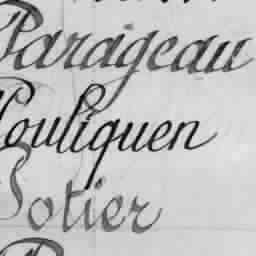 Parageau
Pouliquen
Potier